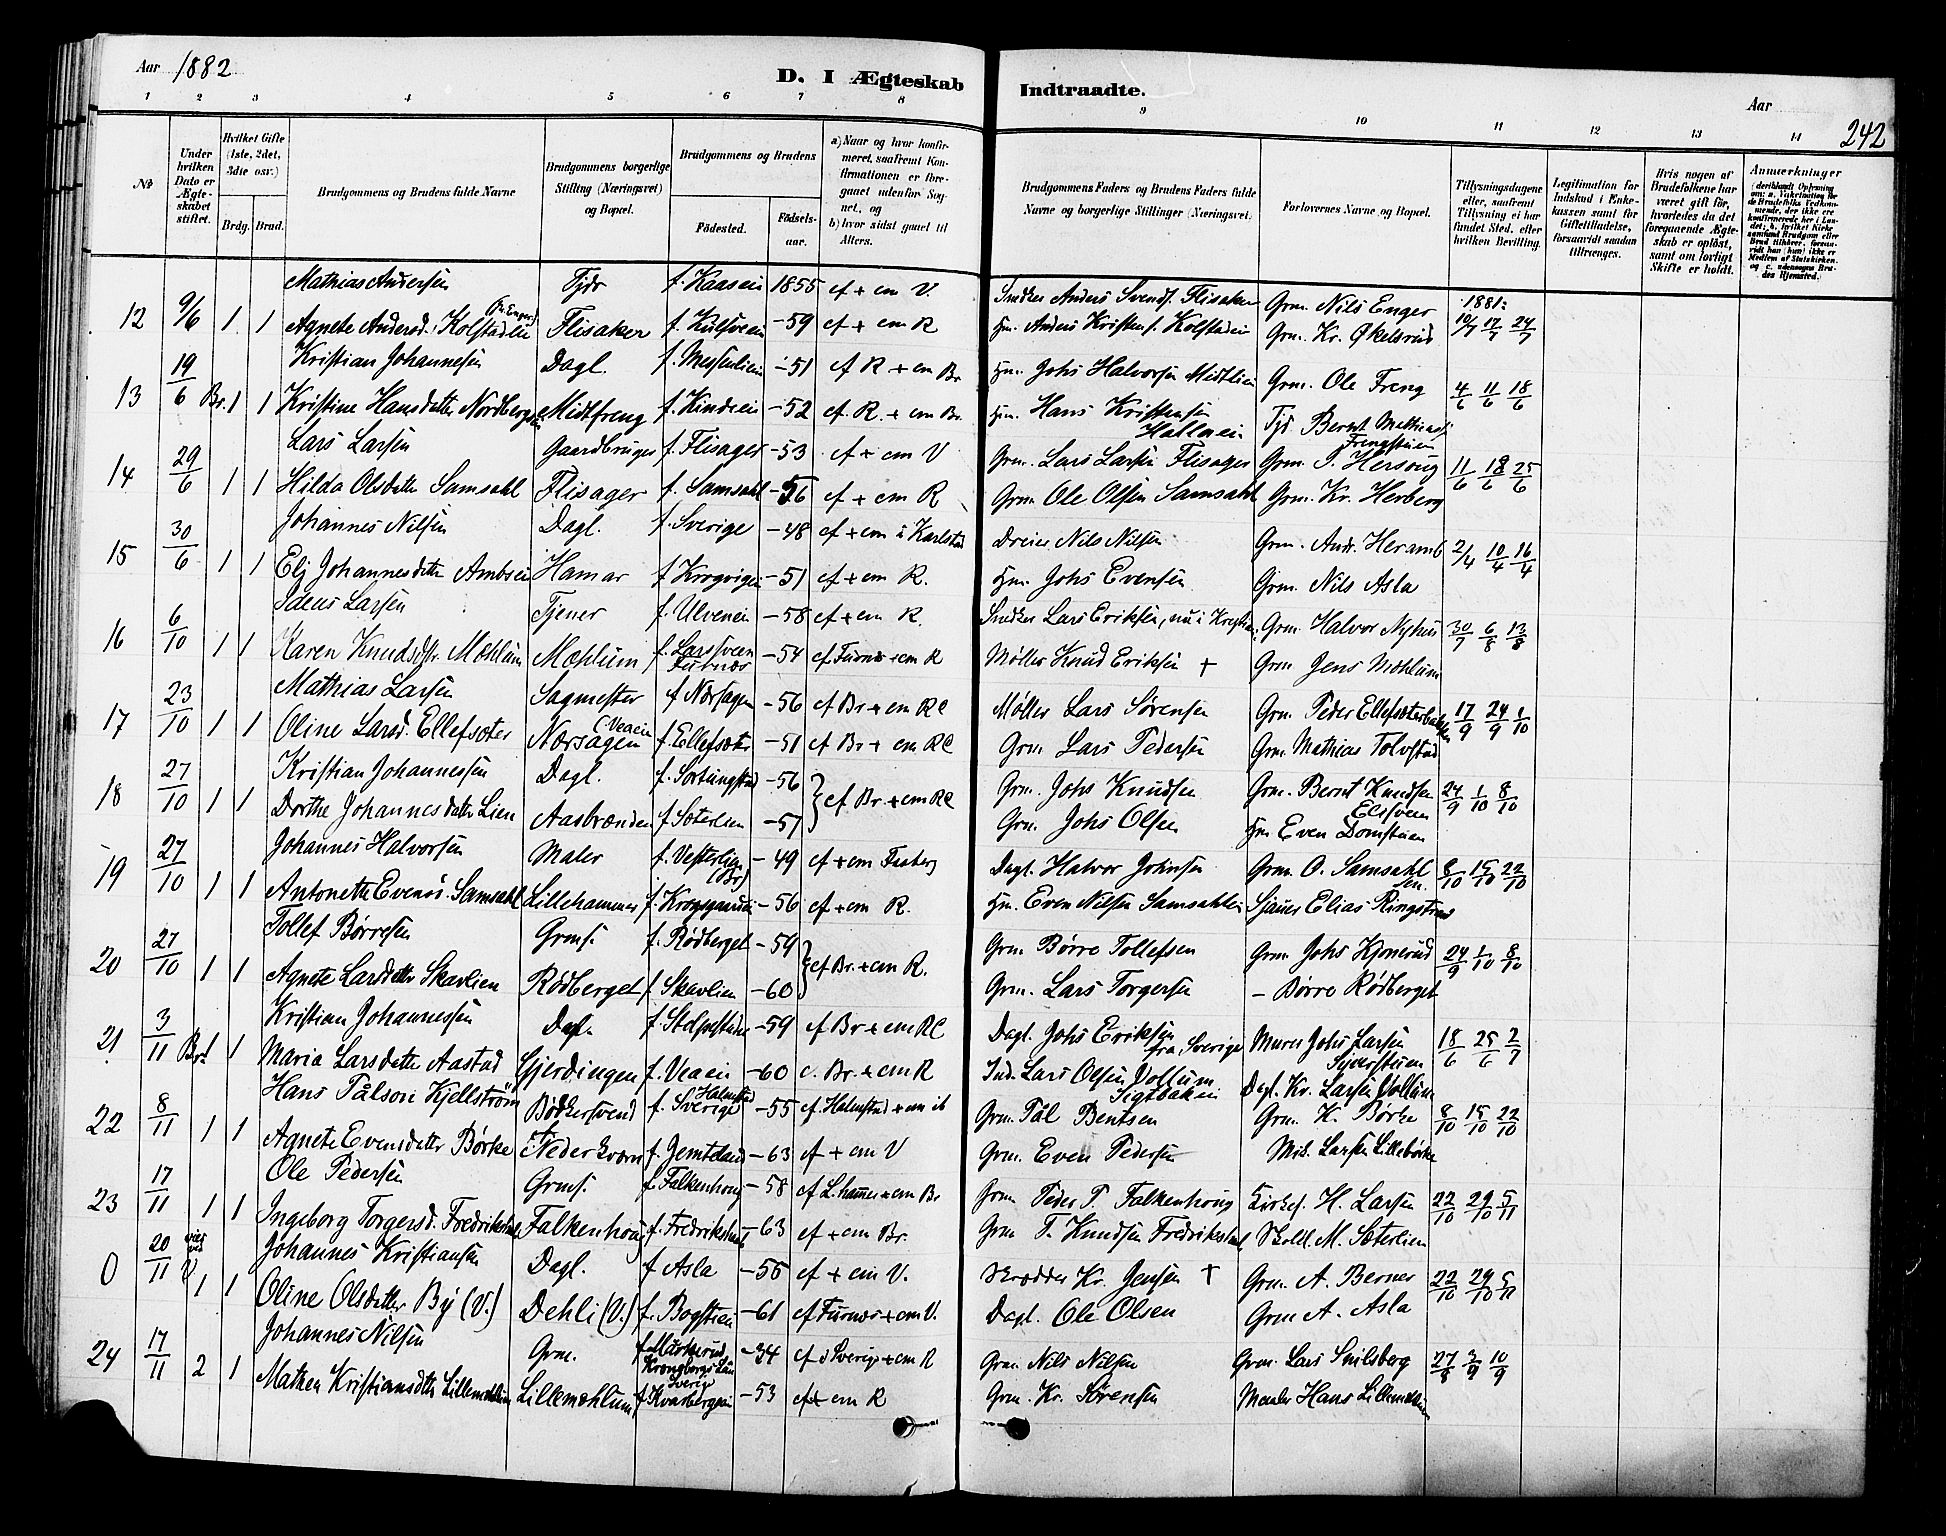 Aar 1882
D. I Ægteskab Indtraadte.
Aar
242
1 2 3 4 5 6 7 8 9 10 11 12 13 14
No
Under hvilken Dato er Ægteskabet stiftet.
Hvilket Gifte (1ste, 2det, 3die osv.)
Brdg. Brud.
Brudgommens og Brudens fulde Navne
Brudgommens borgerlige Stilling (Næringsvei) og Bopæl.
Brudgommens og Brudens
Födested.
Födselsaar.
a) Naar og hvor konfirmeret, saafremt Konfirmationen er foregaaet udenfor Sognet, og
b) hvor sidst gaaet til Alters.
Brudgommens Faders og Brudens Faders fulde Navne og borgerlige Stillinger (Næringsvei.
Forlovernes Navne og Bopæl.
Tillysningsdagene eller, saafremt Tillysning ei har fundet Sted, efter hvilken Bevilling.
Legitimation for Indskud i Enkekassen samt for Giftetilladelse, forsaavidt saadan tiltrænges.
Hvis nogen af Brudefolkene har været gift för, hvorledes da det foregaaende Ægteskab er oplöst, samt om lovligt Skifte er holdt.
Anmærkninger
Mathias Andersen Tjdr f. Kaaseie 1855 cf + cm V. Snedker Anders Svends. Flisaker Grm. Nils Enger 1881:
12 9/6 1 1 Agnete Andersd. Kolstadeie Flisaker f. -59 cf + cm R Hm. Anders Kristens. Kolstadeie Grm. Kr. Økelsrud 10/7 17/7 24/7
Kristian Johannesen Dagl. f. Messenlien -51 cf R + cm Br Hm. Johs Halvorsen Midtlien Grm. Ole Freng
13 19/6 Br. 1 1 Kristine Hansdatter Midtfreng f. Kindseie -52 cf. R. + cm Br. Hm. Hans Kristensen Tjd. Bernt Mathias. Frengstuen 4/6 11/6 18/6
Lars Larsen Gaardbruger f. Flisager -53 cf + cm V Grm. Lars Larsen Flisager Grm. P. Hersoug
14 29/6 1 1 Hilda Olsdatter Samsahl Flisager f. Samsahl -56 cf + cm R Grm Ole Olsen Samsahl Grm. Kr. Herberg 11/6 18/6 25/6
Johannes Nilsen Dagl. f. Sverige -48 cf + cm i Karlstad Dreier Nils Nilsen Grm. Andr. Heramb
15 30/6 1 1 Elj Johannesdatter Ambseie Hamar f Krogvigen -51 cf + cm R. Hm. Johs Evensen Grm. Nils Asla 2/4 10/4 16/4
Larsen Tjener f. Ulveneie -58 cf + cm R. Snedker Lars Eriksen, nu i Grm. Halvor Nyhus
16 6/10 1 1 Karen Knudsdtr. Mæhlum Mæhlum f. Larssveen Furnæs -54 cf Furnæs + cm R Møller Knud Eriksen + Grm Jens Mæhlum 30/7 6/8 13/8
Mathias Larsen Sagmester f Nærsagen -56 cf Br. + cm R Møller Lars Sørensen Grm. Peder Ellefsæterbakken
17 23/10 1 1 Oline Larsd. Ellefsæter Nærsagen (Veaeie f. Ellefsæter -51 cf Br + cm R Grm. Lars Pedersen Grm. Mathias Tolvstad 17/9 24/9 1/10
Kristian Johannessen Dagl. f. Sortungstad -56 Grm. Johs Knudsen Grm. Bernt Knudsen
18 27/10 1 1 Dorthe Johannesdatter Lien Aasbrænden f. Sæterlien -51 cf Br. + cm R Grm. Johs Olsen Hm Even Domstuen 24/9 1/10 8/10
Johannes Halvorsen Maler f. Vesterlien (Br) -49 cf + cm Faaberg Dagl. Halvor Johnsen Grm. O. Samsahl sen.
19 27/10 1 1 Antonette Evensd. Samsahl Lillehammer f. -56 cf + cm R. Hm. Even Nilsen Samsahleie Sjauer Elias Ringstrøm 8/10 15/10 22/10
Tollef Børresen Grms. f. Rødberget -59 Grm. Børre Tollefsen Grm. Johs Kjonerud
20 27/10 1 1 Agnete Larsdatter Skavlien Rødberget f. Skavlien -60 cf Br. + cm R. Grm. Lars Torgersen - Børre Rødberget 24/9 1/10 8/10
Kristian Johannessen Dagl. f. Stolpestuen -59 cf Br + cm R Dagl. Johs Eriksen fra Sverige Murer Johs Larsen
21 3/11 Br. 1 1 Maria Larsdatter Aastad Gjerdingen f. Veaeie -60 c. Br. + cm R Ind. Lars Olsen Jøllum Dagl. Kr. Larsen Jøllum 18/6 25/6 2/7
Hans Pålson Kjellström Bødkersvend f. Sverige Halmstad -55 cf. Halmstad + cm ib Grm. Pål Bentsen Grm. K. Børke
22 8/11 1 1 Agnete Evensdatter Børke Neder Kværn f. Jemtland -63 cf + cm V Grm. Even Pedersen Mis. Larsen Lillebørke 8/10 15/10 22/10
Ole Pedersen Grms. f. Falkenhoug -58 cf L.hamer + cm Br Grm Peder P. Falkenhoug Kirkes. H. Larsen
23 17/11 1 1 Ingeborg Torgersd. Fredrikstad Falkenhoug f. Fredrikstad -63 cf + cm Br. Grm T. Knudsen Fredrikstad Skoll. M. Sæterlien 22/10 29/10 5/11
Johannes Kristiansen Dagl. f Asla -55 cf + cm V. Skrædder Kr. Jensen + Grm. A. Berner
0 20/11 viet ved V 1 1 Oline Olsdatter By (V.) Dehli (V.) f. Bogstien -61 cf Furnæs + cm V. Dagl. Ole Olsen Grm A. Asla 22/10 29/10 5/11
Johannes Nilsen Grm. f Markerud Krongbergs Län Sverige -34 cf i Sverige + cm R Grm. Nils Nilsen Grm. Lars Snilsberg
24 17/11 2 1 Mathea Kristiansdtr Lillemæhlum Lillemæhlum f Kvarbergeie -53 cf + cm R Grm. Kr. Sørensen Maler Hans Lillemæhlum 27/8 3/9 10/9